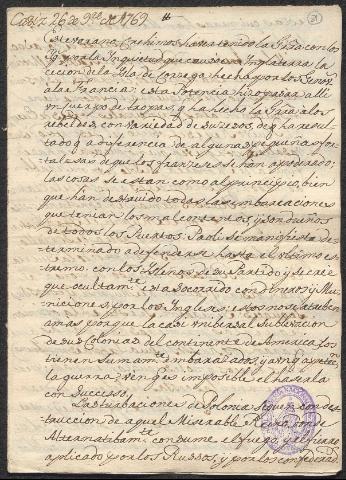 Cadiz 26 de 9bre de 1769
Este verano, crehimos haver tenido la Grra con los
Ys. por la Inquietud que causó en Inglaterra la
cecion de la Isla de Corzega hecha por los Genov.
a la Francia; esta Potencia hizo pasar alli
un cuerpo de tropas, y ha hecho la Grra a los
rebeldes con variedad de suzesos, de q ha resul-
tado q a diferencia de algunas pequeñas for-
talezas de que los franzeses se han apoderado;
las cosas se estan como al principio, bien
que han destruido todas las embarcaciones
que tenian los malcontentos, y son dueños
de todos los Puertos. Paoli se manifiesta de-
terminado a defenderse hasta el ultimo es-
tremo con los demas de su Partido, y se cree
que ocultamte. esta socorrido con dineros y Mu-
niciones por los Ingleses; estos no se atreben
a mas porque la casi unibersal sublevacion
de sus colonias del continente de America los
tienen sumamte. embarazados, y aun q
la guerra, imposible el hazerla
con suceso.
Las turbaciones de Polonia siguen con des-
truccion de aquel Miserable Reino, donde
Alternatibamte. consume el fuego, y el fierro
aplicado por los Russos, y por los confederad.